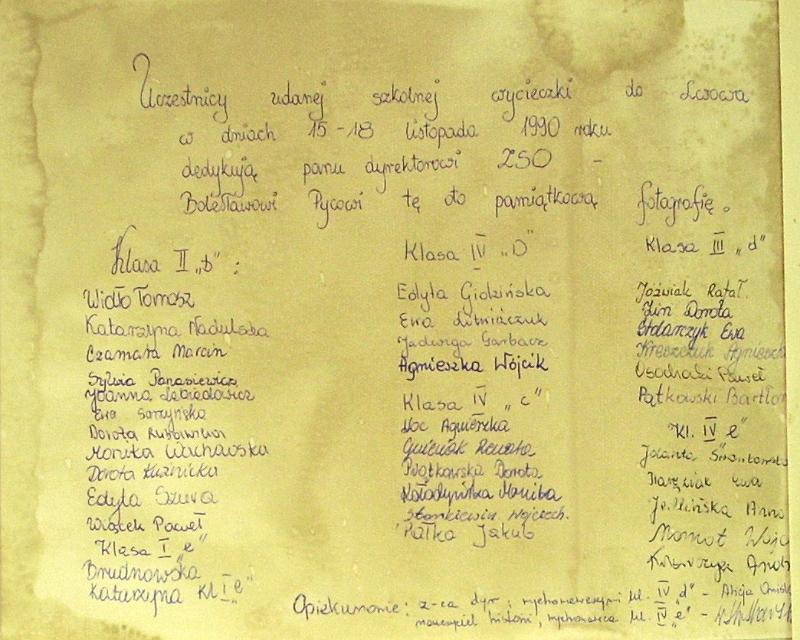 Uczestnicy udanej szkolnej wycieczki do Lwowa
w dniach 15-18 listopada 1990 roku
dedykują panu dyrektorowi ZSO -
Bolesławowi Pycowi tę oto pamiątkową fotografię.
Klasa II „b" :
Widło Tomasz
Katarzyna Nadulska
Czamara Marcin
Sylwia Panasiewicz
Joanna Lebiedowicz
Ewa
Dorota
Monika Wachowska
Dorota Kuźnicka
Edyta Szura
Wiącek Paweł
Klasa I „e"
Brudnowska
Katarzyna Kl I „e"
Klasa IV „D"
Edyta Gidzińska
Ewa Litwińczuk
Jadwiga Garbacz
Agnieszka Wójcik
Klasa IV „c"
Agnieszka
Gnieciak Renata
Piątkowska Dorota
Kołodyńska Monika
Stankiewicz Wojciech.
Pałka Jakub
Klasa III „d"
Jóźwiak Rafał.
Zin Dorota
Stolarczyk Ewa
Kreszczuk Agnieszk
Paweł
Pątkowski Bartło
Kl. IV e"
Jolanta
Ewa
Anna
Mamot
Opiekunowie: z-ca dyr., wychowawczyni kl. IV „d" - Alicja
nauczyciel historii, wychowawca kl. IV „e" -